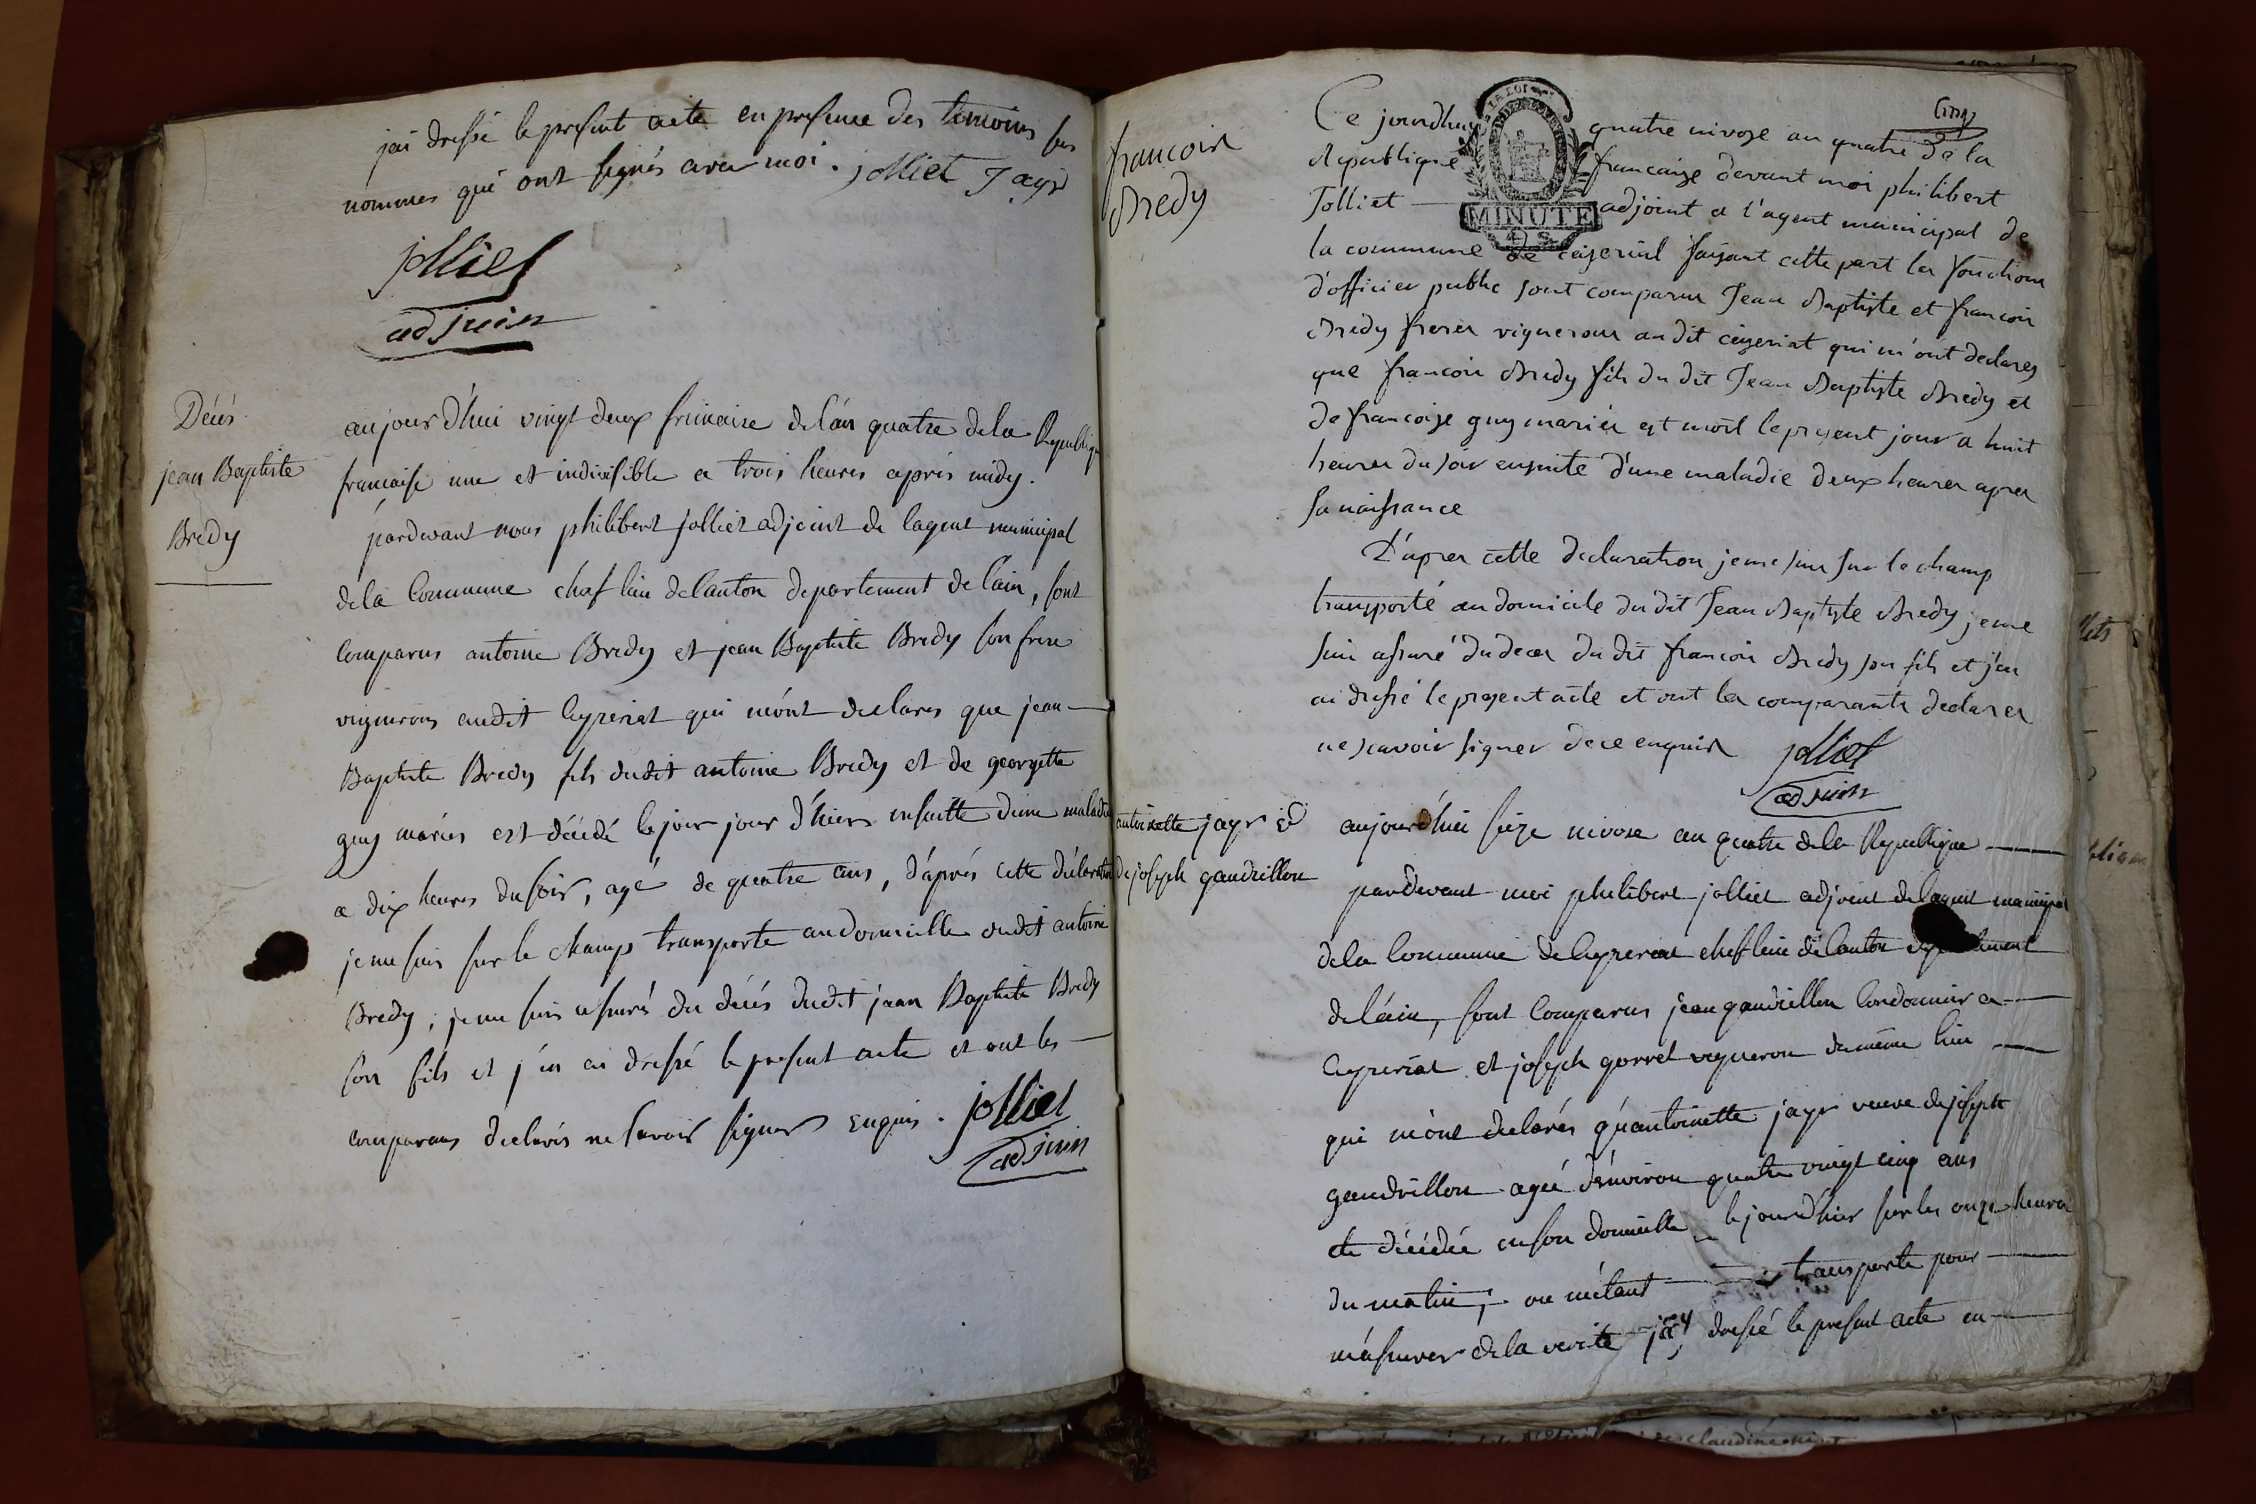 jai dressé le present acte en presence des temoins sus
nommes qui ont signés avec moi. jolliet Jayr
jolliet
adjoin
Décés
jean Baptiste
Bredy
aujourd'hui vingt deux frimaire de l'an quatre de la Republique
francaise une et indivisible a trois heures aprés midy.
pardevant nous philibert jolliet adjoint de lagent municipal
de la Commune chef lieu de Canton departement de lain, sont
Comparus antoine Bredy et jean Baptiste Bredy son frere
vignerons audit Ceyzeriat qui m'ont declares que jean
Baptiste Bredy fils dudit antoine Bredy et de georgette
guy mariés est décédé le jour jour d'hiers ensuitte d'une maladie
a dix heures du soir, agé de quatre ans, d'aprés cette déclaration
je me suis sur le champs transporte au domicille dudit antoine
Bredy, je me suis assurés du décés dudit jean Baptiste Bredy
son fils et j'en ai dressé le present acte et ont les
comparans declarés ne savoir signer Enquis. jolliet
adjoin
francois
Bredy
Cinq
Ce jourdhuy quatre nivoze an quatre de la
Republique francaize devant moi philibert
Jolliet adjoint a l'agent municipal de
la commune de ceizeriat faisant cette part les fonctions
d'officier public sont comparus Jean Baptiste et francois
Bredy freres vignerons au dit ceizeriat qui m'ont declares
que francois Bredy fils du dit Jean Baptiste Bredy et
de francoize guy mariés est mort le prezent jour a huit
heures du soir ensuite d'une maladie deux heures apres
sa naissance
D'apres cette declaration je me suis sur le champ
transporté au domicile du dit Jean Baptiste Bredy je me
suis assuré du deces du dit francois Bredy son fils et j'en
ai dressé le prezent acte et ont les comparants declares
ne scavoir signer de ce enquis jolliet
adjoin
antoinette jayr vve
de joseph gaudrillon
aujourd'hui seize nivose an quatre de la Republique
pardevant moi philibert jolliet adjoint de lagent municipal
de la Commune de Ceyzeriat chef lieu de Canton departement
de l'ain, sont Comparus jean gaudrillon Cordonnier a
Ceyzeriat et joseph gorrel vigneron du même lieu
qui m'ont declarés qu'antoinette jayr veuve de joseph
gaudrillon agée d'environ quatre vingt cinq ans
est décédée en son domicille le jour d'hier sur les onze heures
du matin; ou m'étant transporte pour
m'assurer de la verité j'ay dressé le present acte en